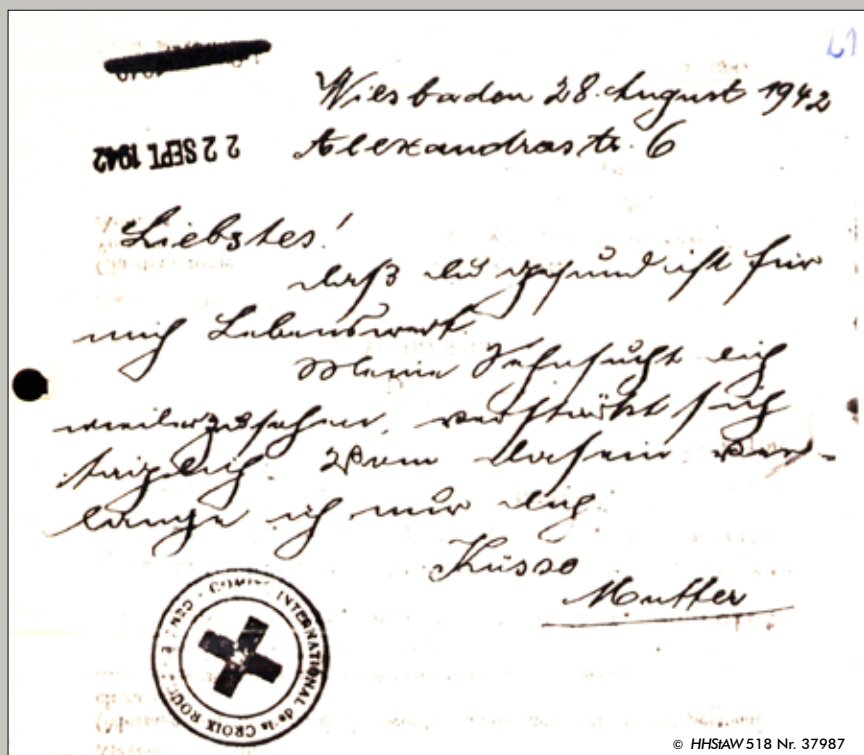 21
Wiesbaden 28. August 1942
22 SEPT. 1942
Alexandrastr. 6
Liebstes!
daß du gesund ist für
mich Lebenswert.
Meine Sehnsucht dich
wiederzusehen, verstärkt sich
täglich. Vom Dasein ver-
lange ich nur dich.
Küsse
Mutter
COMITÉ INTERNATIONAL de la CROIX ROUGE - GENÈVE
© HHStAW 518 Nr. 37987